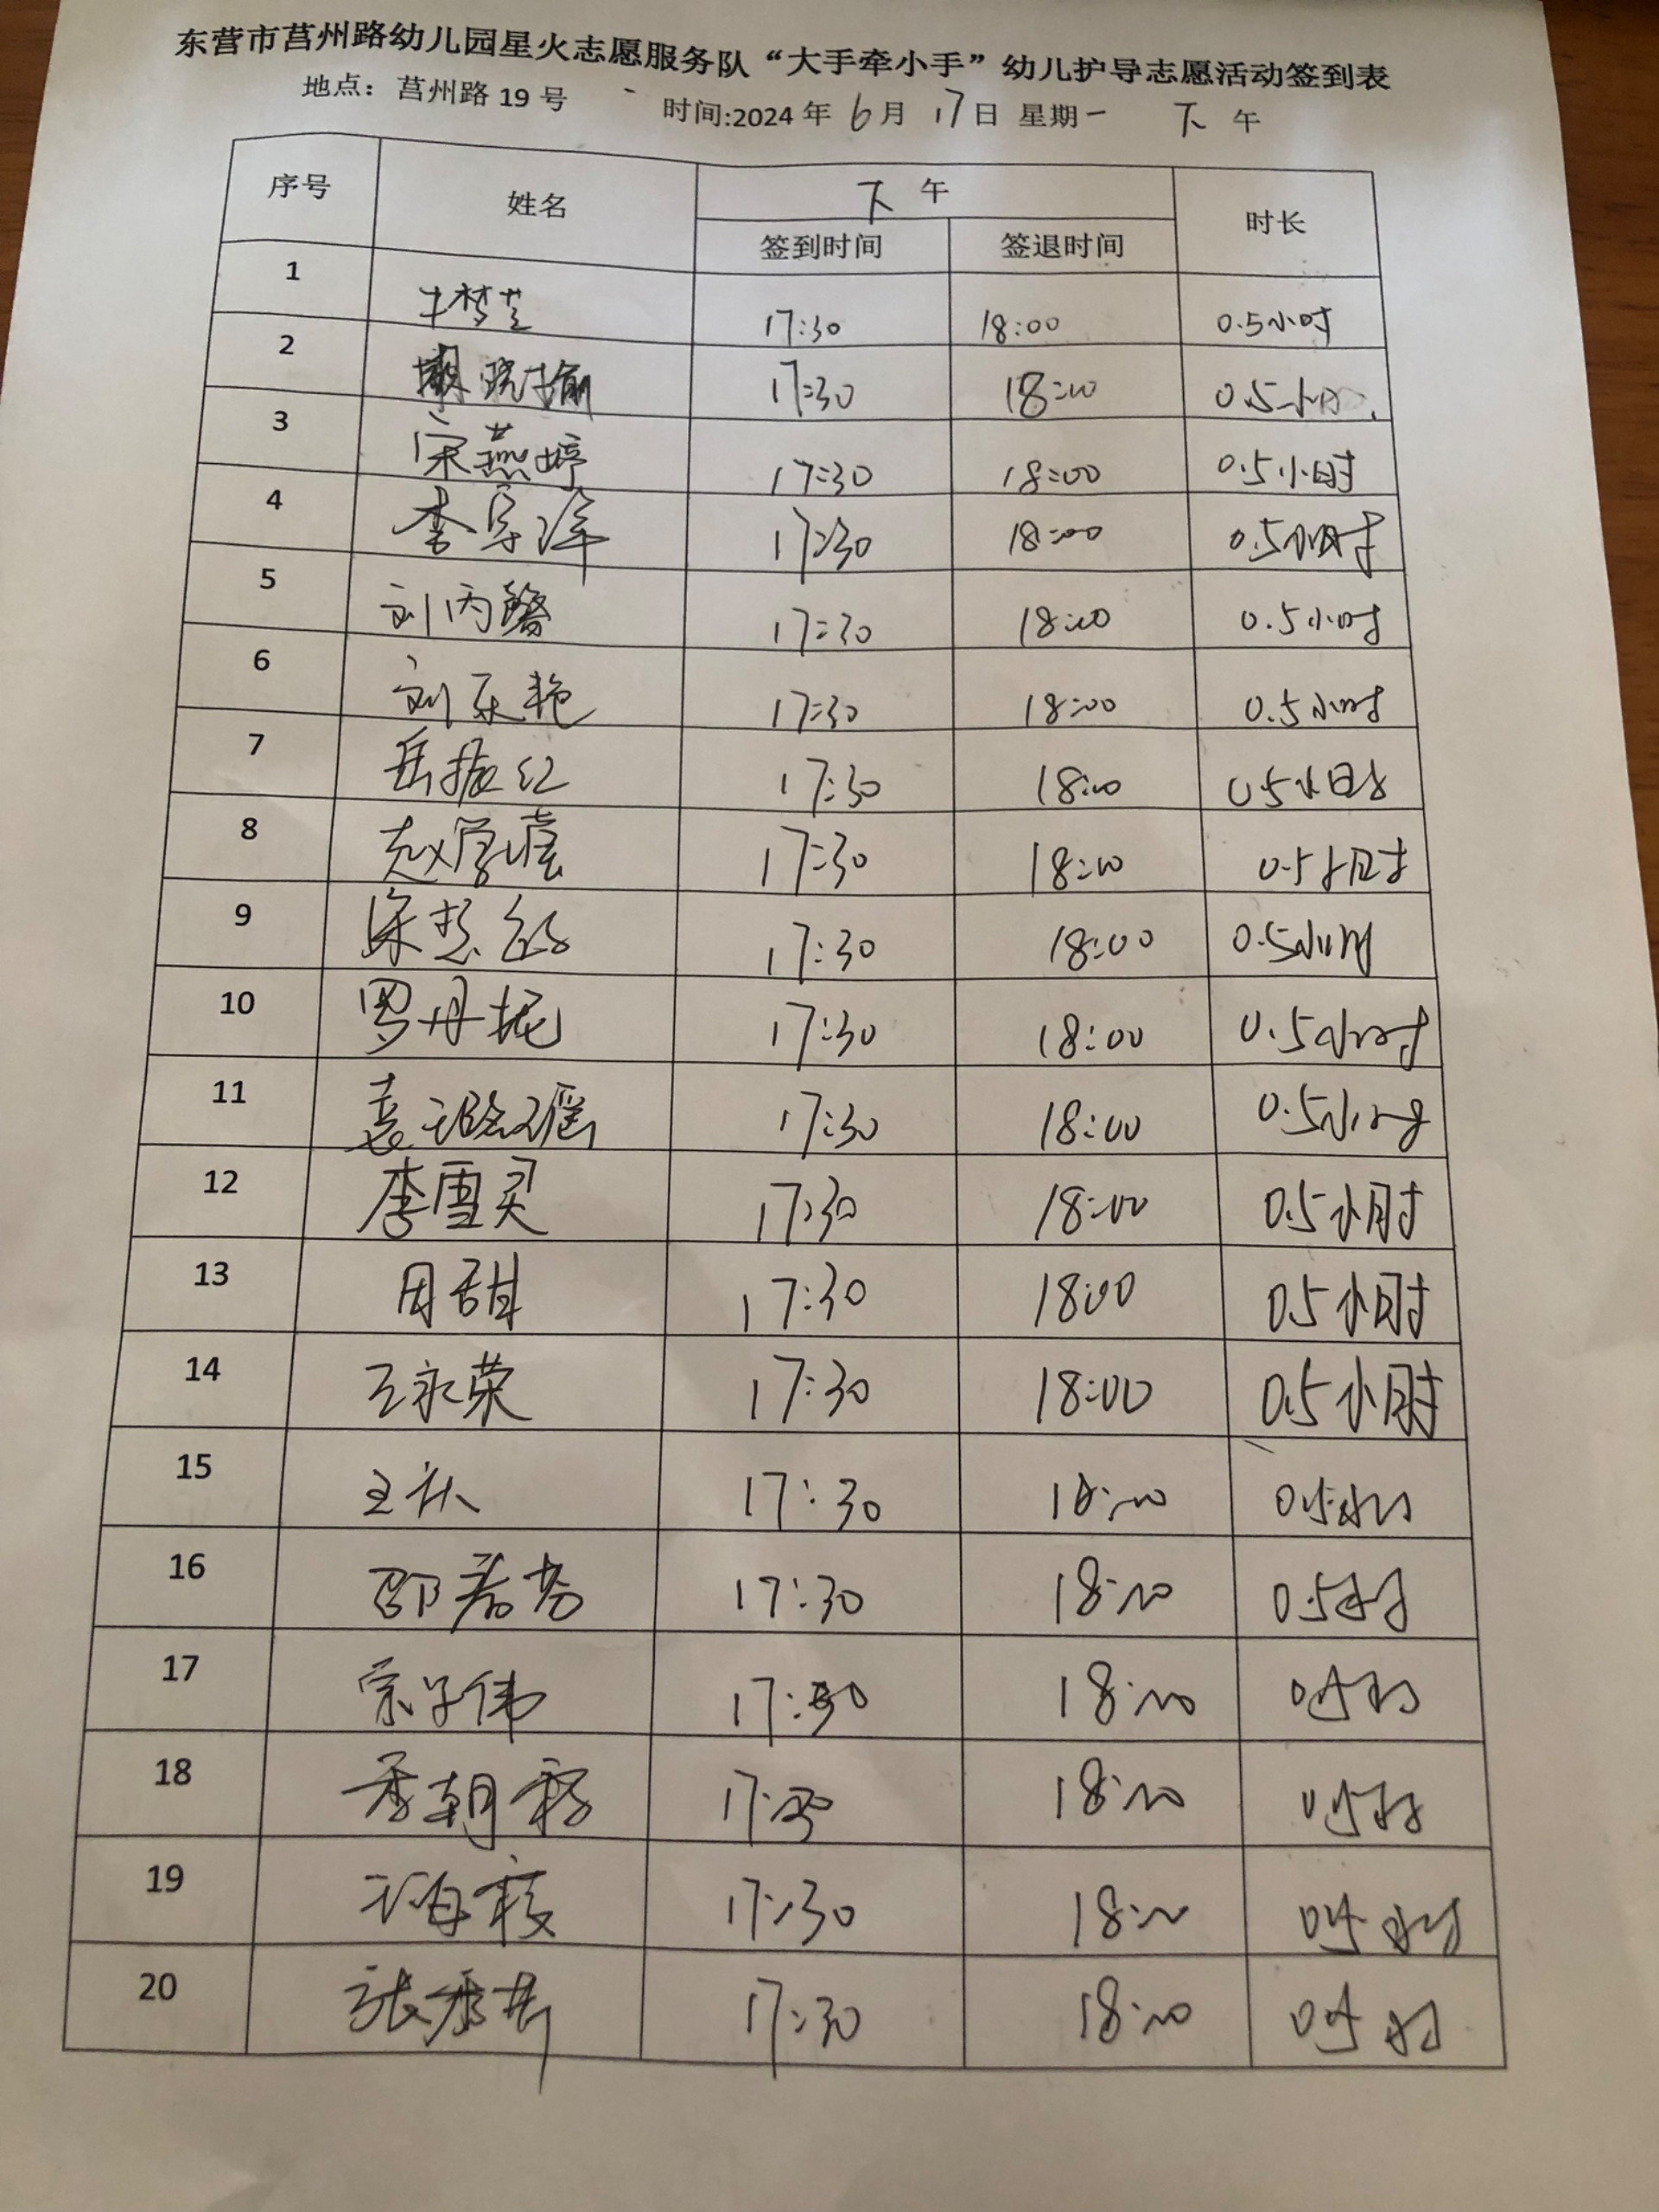 东营市莒州路幼儿园星火志愿服务队“大手牵小手”幼儿护导志愿活动签到表
地点：莒州路 19 号 时间:2024 年 6 月 17 日 星期一 下 午
序号 姓名 下 午 时长
签到时间 签退时间
1 17:30 18:00 0.5小时
2 17:30 18:00 0.5小时
3 宋燕婷 17:30 18:00 0.5小时
4 李宗洋 17:30 18:00 0.5小时
5 刘丙馨 17:30 18:00 0.5小时
6 刘东艳 17:30 18:00 0.5小时
7 岳振红 17:30 18:00 0.5小时
8 赵学喜 17:30 18:00 0.5小时
9 17:30 18:00 0.5小时
10 罗丹妮 17:30 18:00 0.5小时
11 袁璐瑶 17:30 18:00 0.5小时
12 李雪灵 17:30 18:00 0.5小时
13 周甜 17:30 18:00 0.5小时
14 王永荣 17:30 18:00 0.5小时
15 17:30 18:00 0.5小时
16 17:30 18:00 0.5小时
17 宗子伟 17:30 18:00 0.5小时
18 17:30 18:00 0.5小时
19 17:30 18:00 0.5小时
20 17:30 18:00 0.5小时